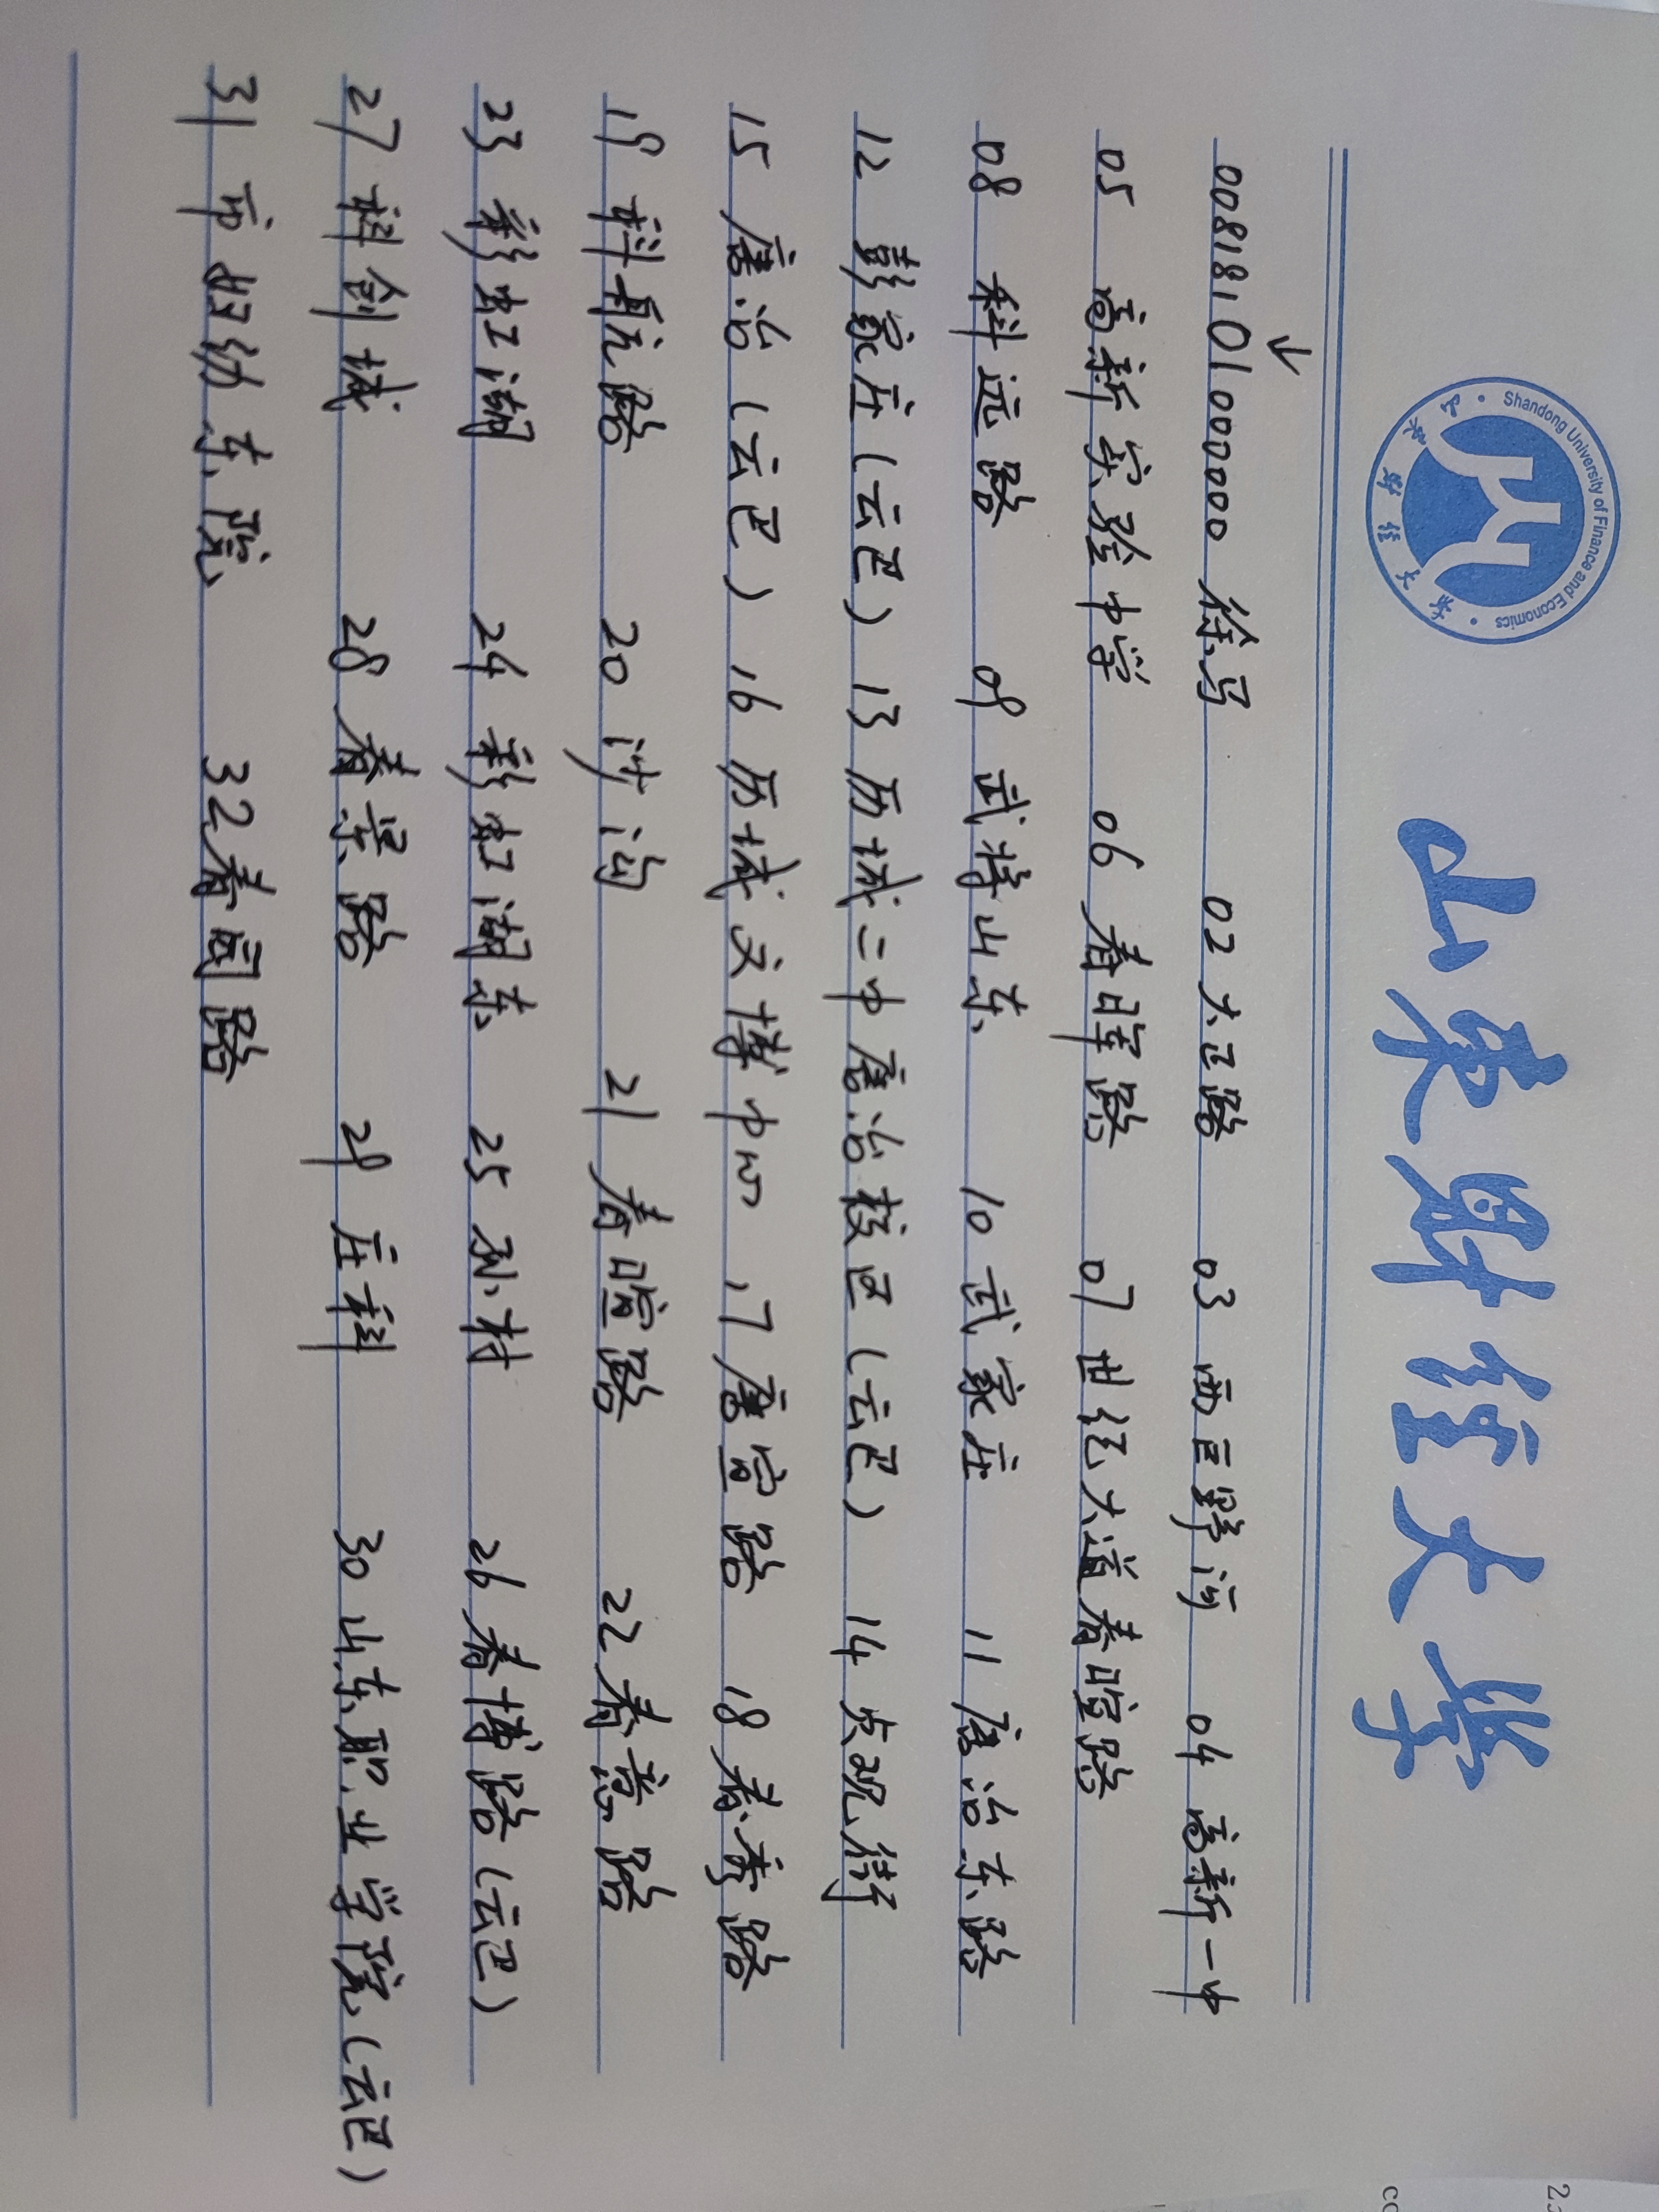 山东财经大学
Shandong University of Finance and Economics
山东财经大学
↓
0081810100000 徐马 02 大正路 03 西巨野河 04 高新一中
05 高新实验中学 06 春晖路 07 世纪大道春暄路
08 科远路 09 武将山东 10 武家庄 11 唐冶东路
12 彭家庄(云巴) 13 历城二中唐冶校区(云巴) 14 贞观街
15 唐冶(云巴) 16 历城文博中心 17 唐官路 18 春秀路
19 科航路 20 涉沟 21 春暄路 22 春意路
23 彩虹湖 24 彩虹湖东 25 孙村 26 春博路(云巴)
27 科创城 28 春景路 29 庄科 30 山东职业学院(云巴)
31 市妇幼东院 32 春阁路